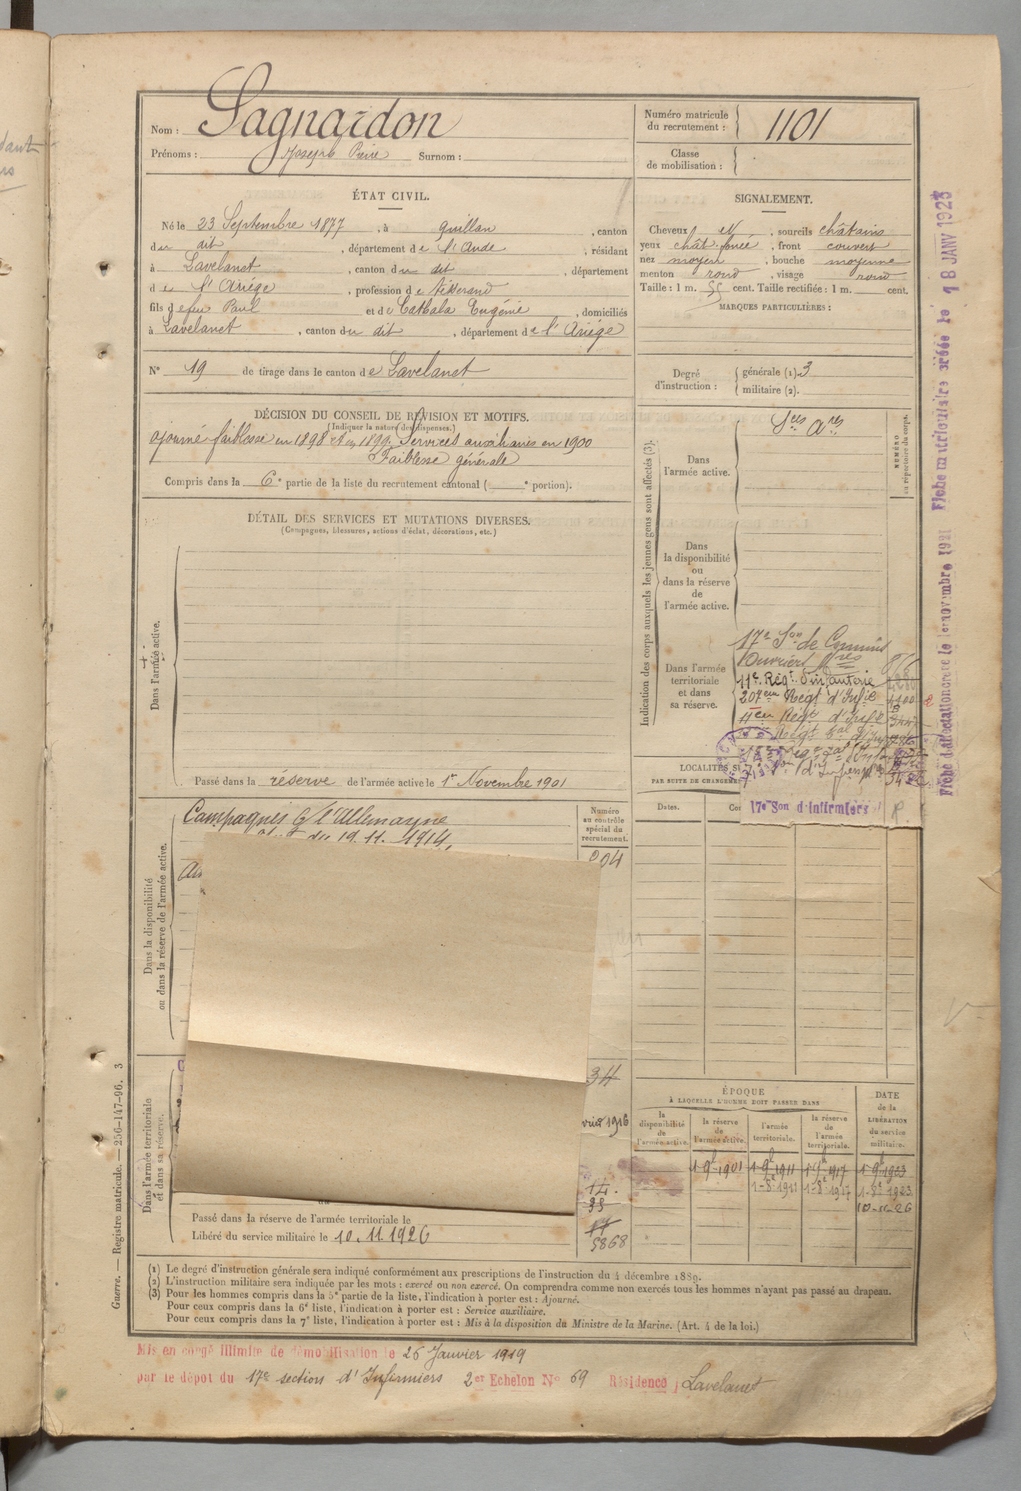 Nom : Sagnardon
Prénoms : Joseph Pierre Surnom :
Numéro matricule du recrutement : 1101
Classe de mobilisation :
ÉTAT CIVIL.
Né le 23 Septembre 1877, à Quillan, canton
du dit, département de l'Aude, résidant
à Lavelanet, canton du dit, département
de l'Ariège, profession de Tisserand
fils de feu Paul et de Cathala Eugénie, domiciliés
à Lavelanet, canton du dit, département de l'Ariège
N° 19 de tirage dans le canton de Lavelanet
SIGNALEMENT.
Cheveux et, sourcils châtains
yeux chât. foncé, front couvert
nez moyen, bouche moyenne
menton rond, visage rond
Taille : 1 m. 55 cent. Taille rectifiée : 1 m. cent.
MARQUES PARTICULIÈRES :
Degré d'instruction : générale (1). 3
militaire (2).
DÉCISION DU CONSEIL DE RÉVISION ET MOTIFS.
(Indiquer la nature des dispenses.)
Ajourné faiblesse en 1898 et en 1899. Services auxiliaires en 1900
Faiblesse générale
Compris dans la 6e partie de la liste du recrutement cantonal ( e portion).
DÉTAIL DES SERVICES ET MUTATIONS DIVERSES.
(Campagnes, blessures, actions d'éclat, décorations, etc.)
Dans l'armée active.
Passé dans la réserve de l'armée active le 1er Novembre 1901
Indication des corps auxquels les jeunes gens sont affectés (3).
NUMÉRO au répertoire du corps.
Dans l'armée active.
Sces Ares
Dans la disponibilité ou dans la réserve de l'armée active.
Dans l'armée territoriale et dans sa réserve.
17e Son de Commis
Ouvriers
11e Régt d'infanterie
207eme Régt d'Infie
17e Son d'Infirmiers
LOCALITÉS
PAR SUITE DE CHANGEME
Dates.
Dans la disponibilité ou dans la réserve de l'armée active.
Campagnes c/ l'Allemagne
du 19.11.1914.
Numéro au contrôle spécial du recrutement.
Dans l'armée territoriale et dans sa réserve.
Passé dans la réserve de l'armée territoriale le
Libéré du service militaire le 10.11.1926
5868
ÉPOQUE
À LAQUELLE L'HOMME DOIT PASSER DANS
la disponibilité de l'armée active.
la réserve de l'armée active.
l'armée territoriale.
la réserve de l'armée territoriale.
DATE de la LIBÉRATION du service militaire.
1-9-1901 1-9-1911 1-9-1917 1-9-1923
10-11-26
(1) Le degré d'instruction générale sera indiqué conformément aux prescriptions de l'instruction du 4 décembre 1889.
(2) L'instruction militaire sera indiquée par les mots : exercé ou non exercé. On comprendra comme non exercés tous les hommes n'ayant pas passé au drapeau.
(3) Pour les hommes compris dans la 5e partie de la liste, l'indication à porter est : Ajourné.
Pour ceux compris dans la 6e liste, l'indication à porter est : Service auxiliaire.
Pour ceux compris dans la 7e liste, l'indication à porter est : Mis à la disposition du Ministre de la Marine. (Art. 4 de la loi.)
Mis en congé illimité de démobilisation le 26 Janvier 1919
par le dépôt du 17e section d'Infirmiers 2er Echelon N° 69 Résidence Lavelanet
Guerre. — Registre matricule. — 256-147-96. 3
Fiche d'affectation créée le 1er novembre 1921 Fiche matriculaire créée le 18 JANV 1923